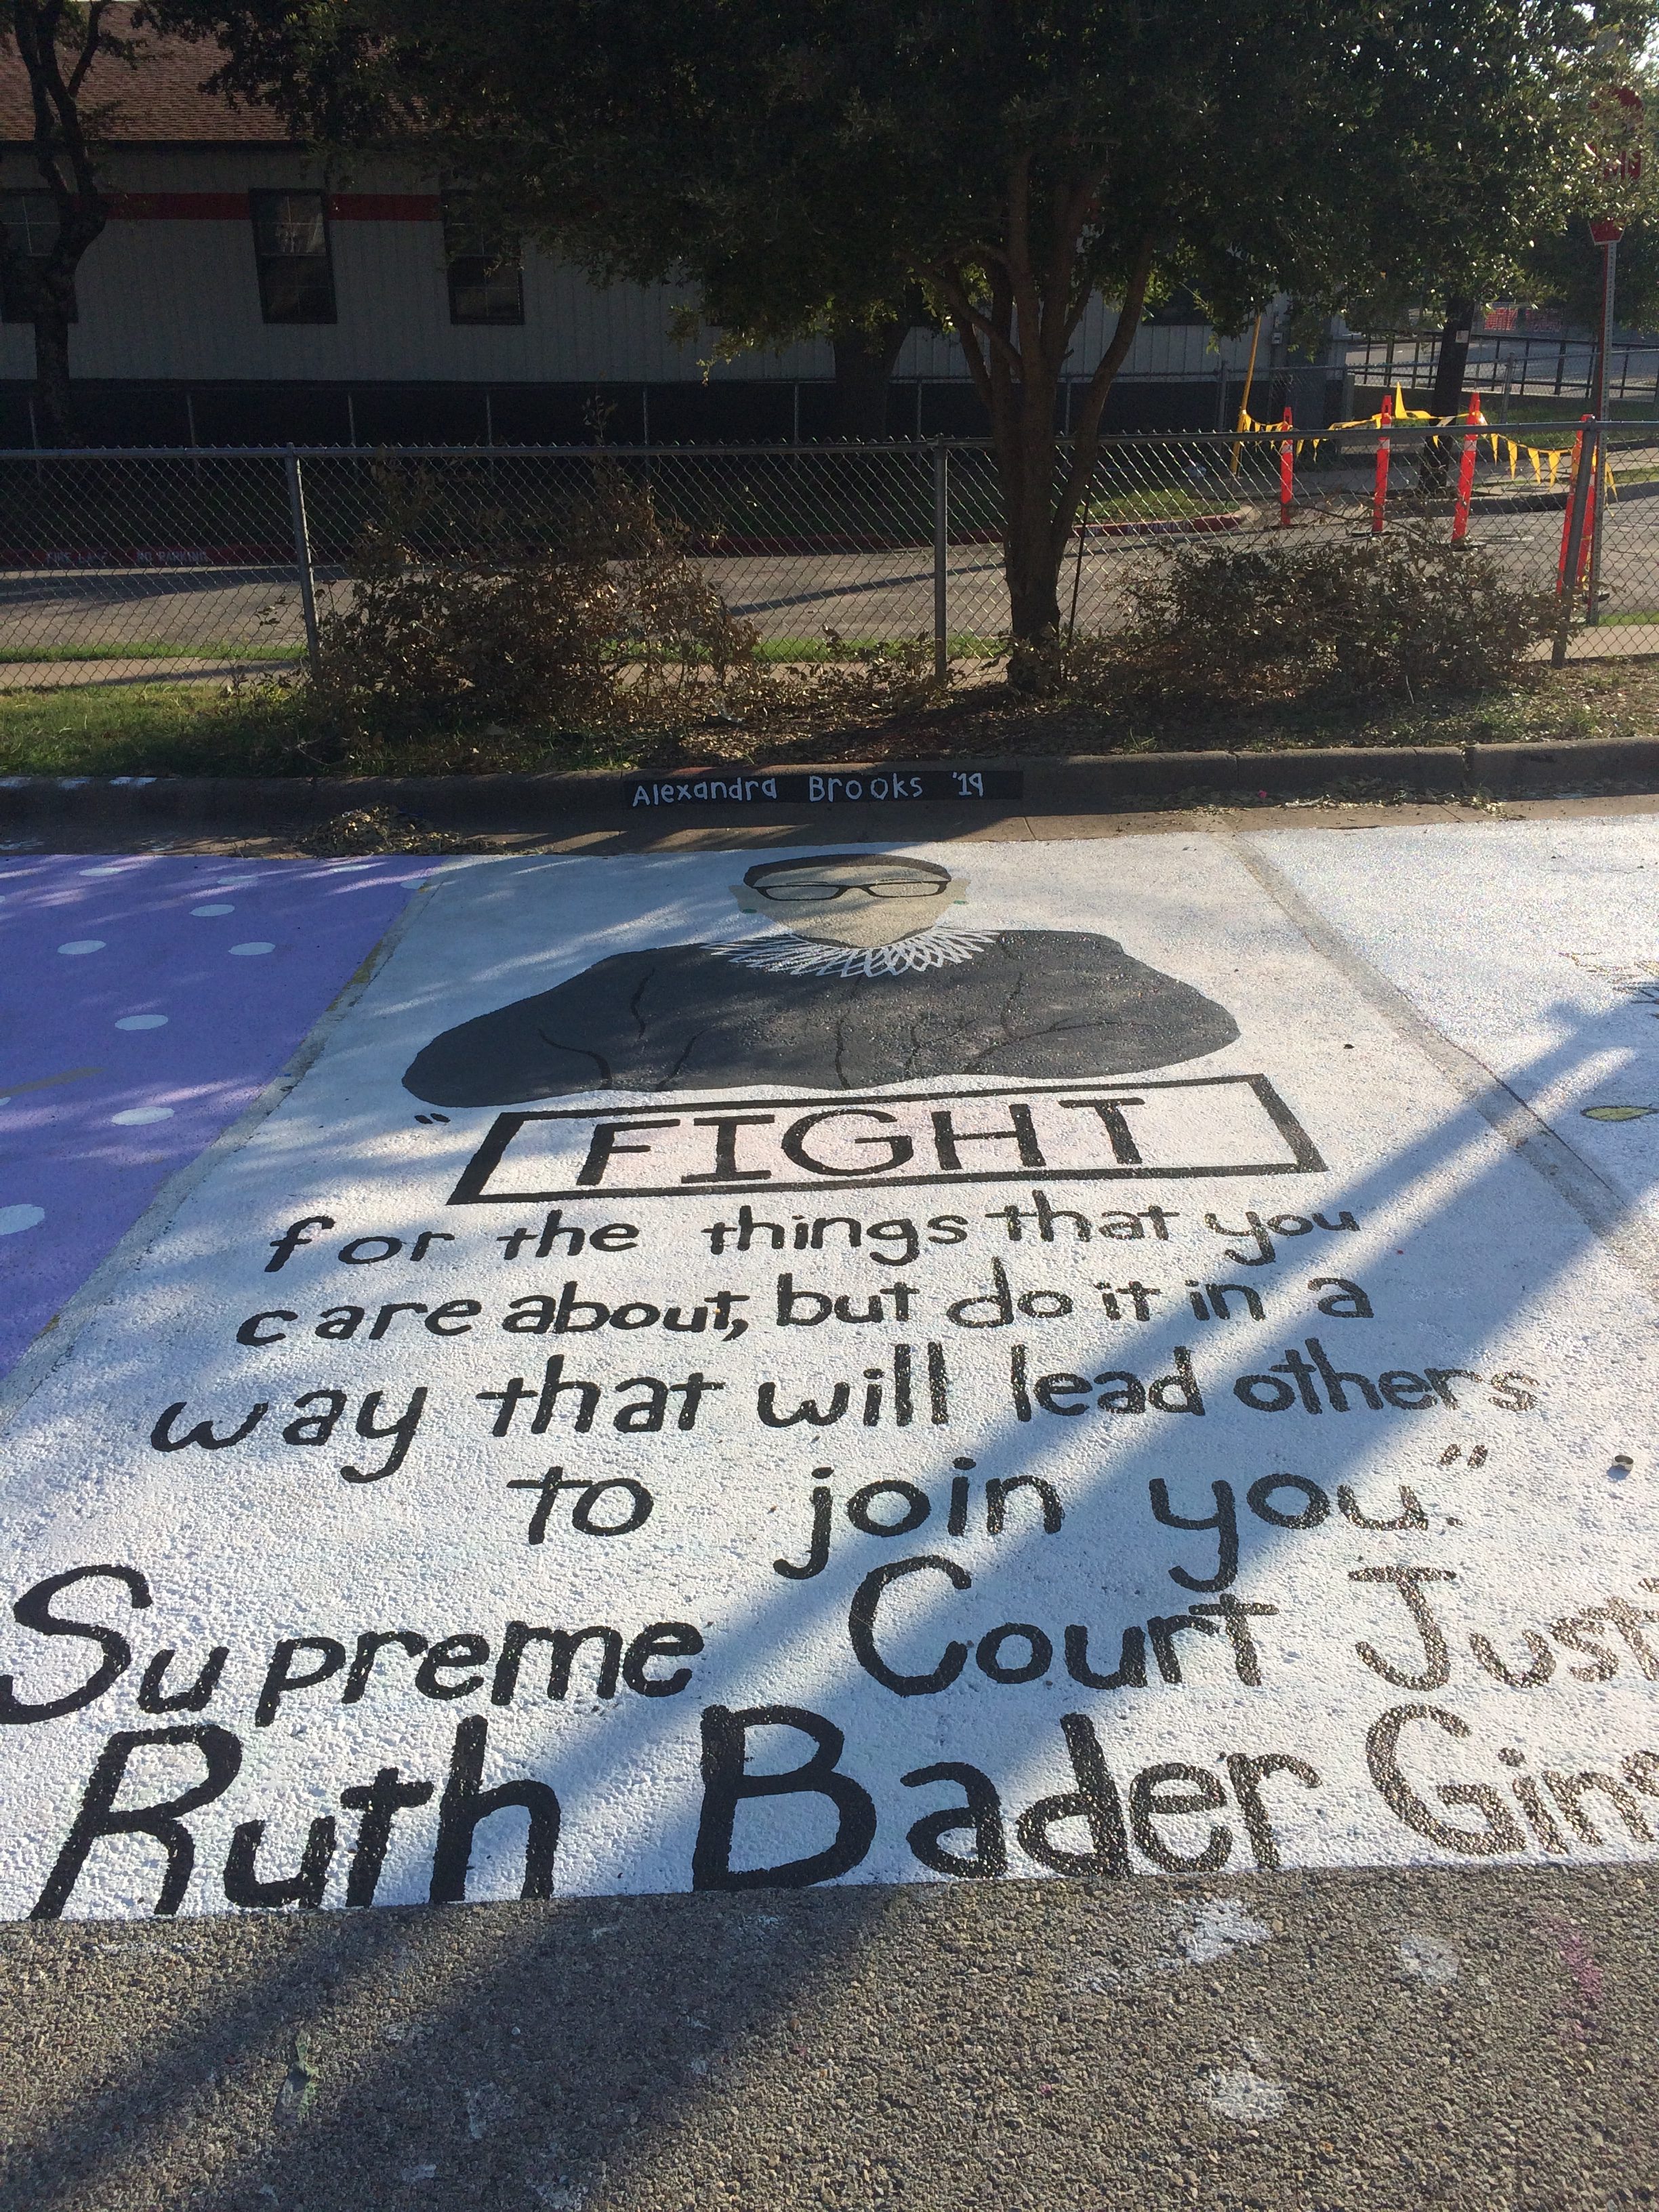 FIRE LANE NO PARKING
Alexandra Brooks '19
"FIGHT
for the things that you
care about, but do it in a
way that will lead others
to join you."
Supreme Court Just
Ruth Bader Gins